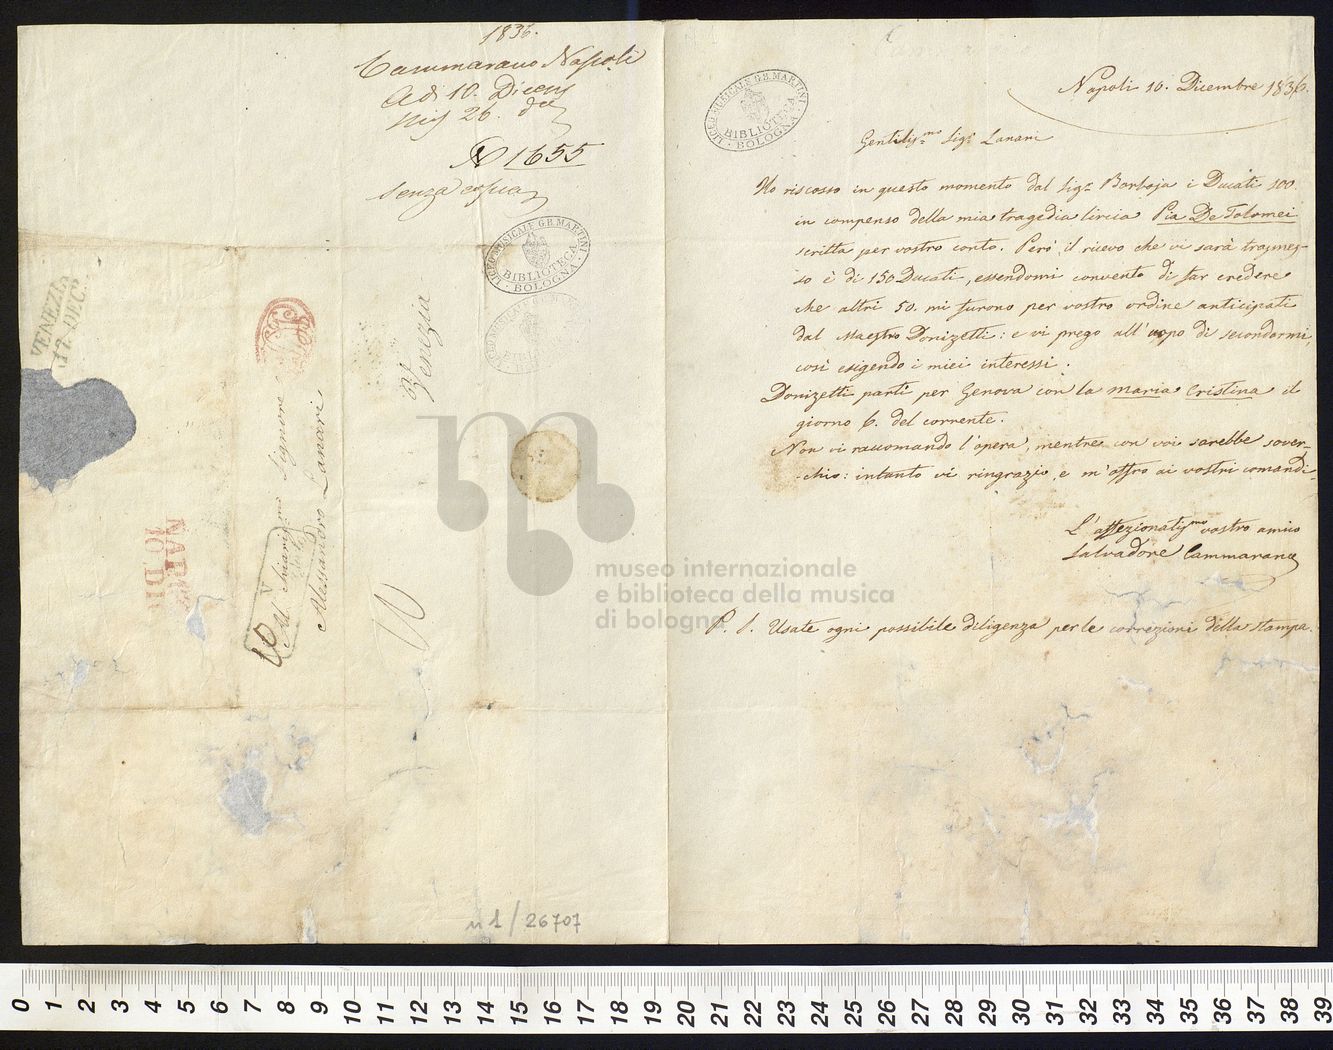 1836.
Cammarano Napoli
Adi 10. Dicem
26. do
N 1655
senza copia
LICEO MUSICALE G.B. MARTINI
BIBLIOTECA
BOLOGNA
VENEZIA
17. DEC.
NAP
10. DI
Al Chiariss.mo Signore
Alessandro Lanari
Venezia
museo internazionale
e biblioteca della musica
di bologna
n 1/26707
LICEO MUSICALE G.B. MARTINI
BIBLIOTECA
BOLOGNA
Napoli 10. Dicembre 1836.
Gentiliss.mo Sig.r Lanari
Ho riscosso in questo momento dal Sig.r Barbaja i Ducati 100.
in compenso della mia tragedia lirica Pia De Tolomei
scritta per vostro conto. Però il ricevo che vi sarà trasmes-
so è di 150 Ducati, essendomi convenuto di far credere
che altri 50. mi furono per vostro ordine anticipati
dal Maestro Donizetti: e vi prego all'uopo di secondarmi,
così esigendo i miei interessi.
Donizetti partì per Genova con la Maria Cristina il
giorno 6. del corrente.
Non vi raccomando l'opera, mentre con voi sarebbe sover-
chio: intanto vi ringrazio, e m'offro ai vostri comandi.
L'affezionatiss.mo vostro amico
Salvadore Cammarano
P. S. Usate ogni possibile diligenza per le correzioni della stampa.
0 1 2 3 4 5 6 7 8 9 10 11 12 13 14 15 16 17 18 19 20 21 22 23 24 25 26 27 28 29 30 31 32 33 34 35 36 37 38 39